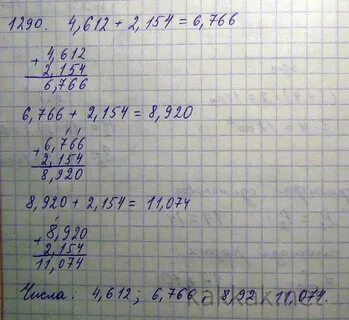 1290. 4,612 + 2,154 = 6,766
+ 4,612
2,154
6,766
6,766 + 2,154 = 8,920
+ 6,766
2,154
8,920
8,920 + 2,154 = 11,074
+ 8,920
2,154
11,074
Числа: 4,612; 6,766 8,92 11,074.